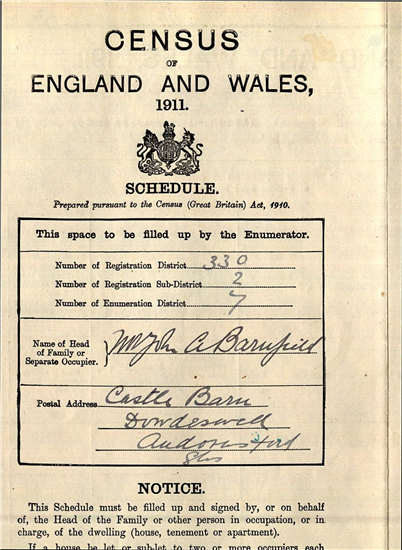 CENSUS
OF
ENGLAND AND WALES,
1911.
SCHEDULE.
Prepared pursuant to the Census (Great Britain) Act, 1910.
This space to be filled up by the Enumerator.
Number of Registration District 330
Number of Registration Sub-District 2
Number of Enumeration District 7
Name of Head
of Family or
Separate Occupier.
Mr John A Barnfield
Postal Address Castle Barn
Dowdeswell
Andoversford
Glos
NOTICE.
This Schedule must be filled up and signed by, or on behalf
of, the Head of the Family or other person in occupation, or in
charge, of the dwelling (house, tenement or apartment).
If a house be let or sub-let to two or more occupiers each